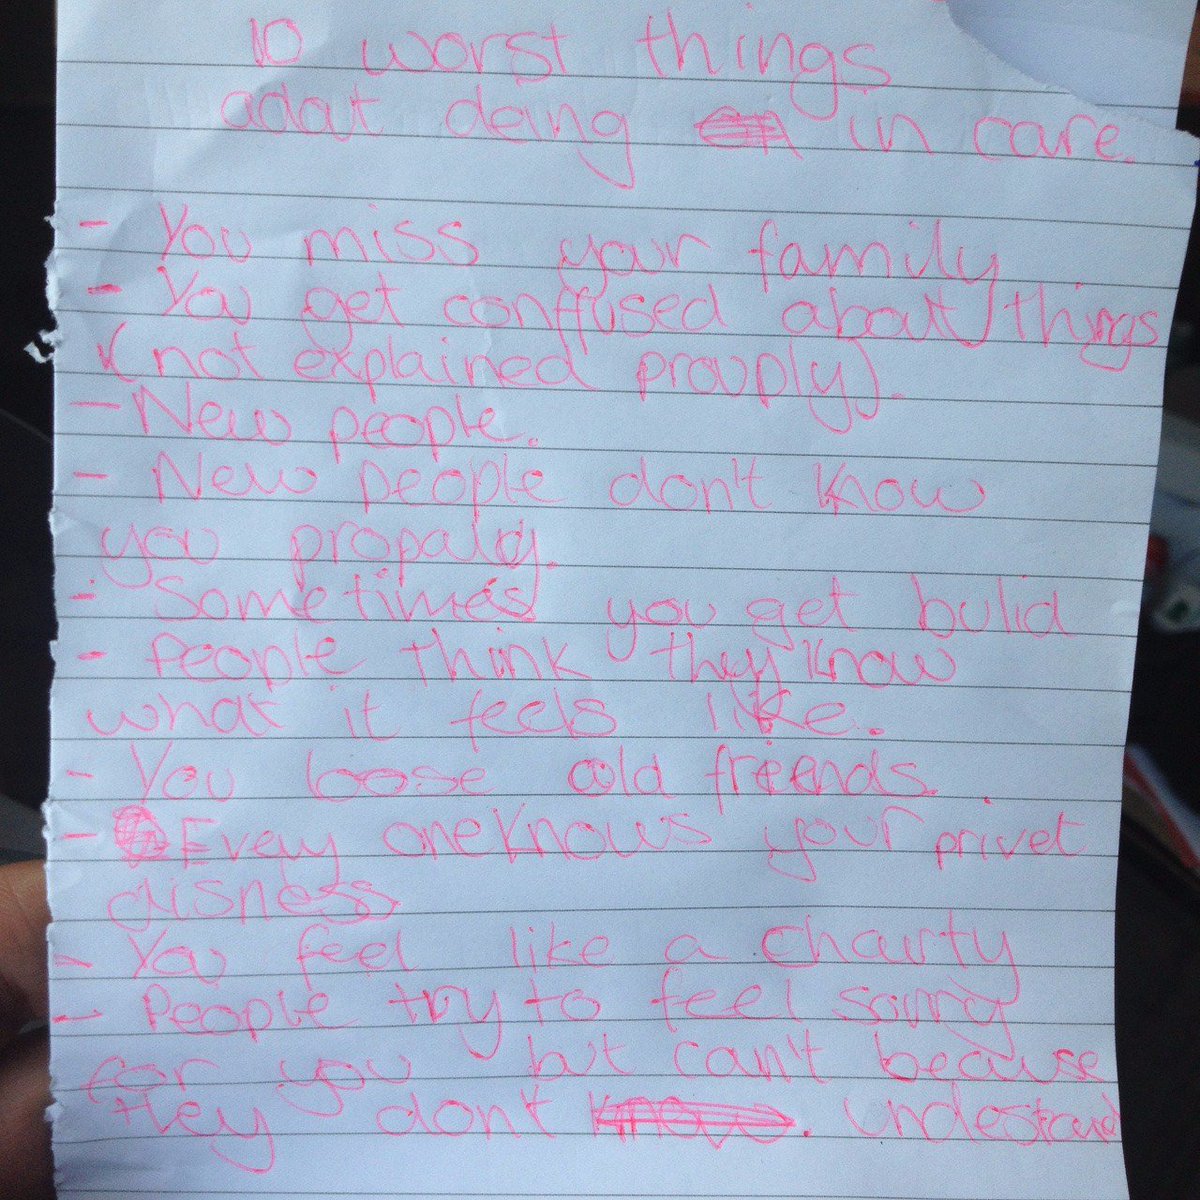 10 worst things
adout deing in care.
- You miss your family
- You get conffused about things
(not explained prouply).
- New people.
- New people don't know
you propaldy.
- Sometimes you get bulid
- People think they know
what it feels like.
- You loose old frieends.
- Every one knows your privet
disness
- You feel like a chairty
- People try to feel sorry
for you but can't because
they don't know. undestand